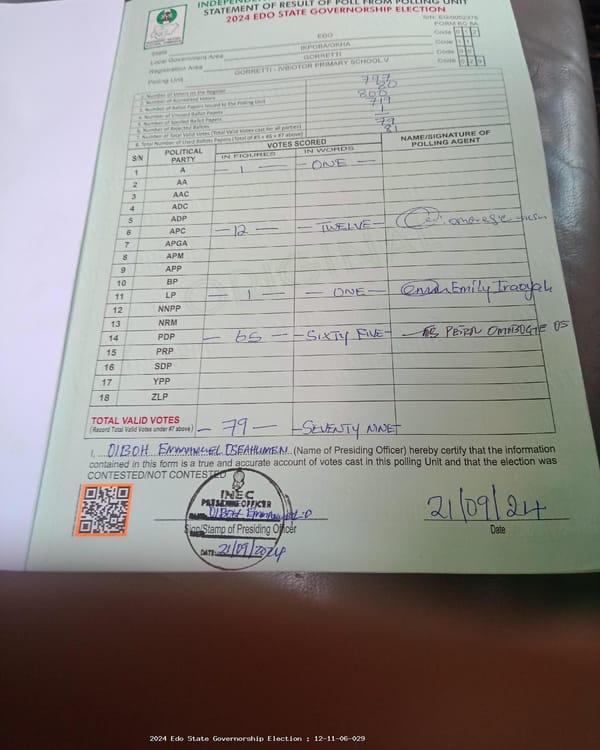 INDEPENDENT
STATEMENT OF RESULT OF POLL FROM POLLING UNIT
2024 EDO STATE GOVERNORSHIP ELECTION
FORM EC 8A
State EDO Code 1 2
Local Government Area IKPOBA/OKHA Code 1 1
Registration Area GORRETTI Code 0 6
Polling Unit GORRETTI - IVBIOTOR PRIMARY SCHOOL V Code 0 2 9
1. Number of Voters on the Register 797
2. Number of Accredited Voters 80
3. Number of Ballot Papers Issued to the Polling Unit 800
4. Number of Unused Ballot Papers 719
5. Number of Spoiled Ballot Papers 1
6. Number of Rejected Ballots
7. Number of Total Valid Votes (Total Valid Votes cast for all parties) 79
8. Total Number of Used Ballot Papers (Total of #5 + #6 + #7 above) 81
S/N POLITICAL PARTY VOTES SCORED NAME/SIGNATURE OF POLLING AGENT
IN FIGURES IN WORDS
1 A - 1 - - ONE -
2 AA
3 AAC
4 ADC
5 ADP
6 APC - 12 - - TWELVE -
7 APGA
8 APM
9 APP
10 BP
11 LP - 1 - - ONE - Emily
12 NNPP
13 NRM
14 PDP - 65 - - SIXTY FIVE - PETER
15 PRP
16 SDP
17 YPP
18 ZLP
TOTAL VALID VOTES - 79 - - SEVENTY NINE -
(Record Total Valid Votes under #7 above)
I, DIBOH EMMANUEL OSEAHUMEN (Name of Presiding Officer) hereby certify that the information
contained in this form is a true and accurate account of votes cast in this polling Unit and that the election was
CONTESTED/NOT CONTESTED
INEC
PRESIDING OFFICER
DIBOH EMMANUEL .O
Sign/Stamp of Presiding Officer
DATE: 21/09/2024
21/09/24
Date
2024 Edo State Governorship Election : 12-11-06-029